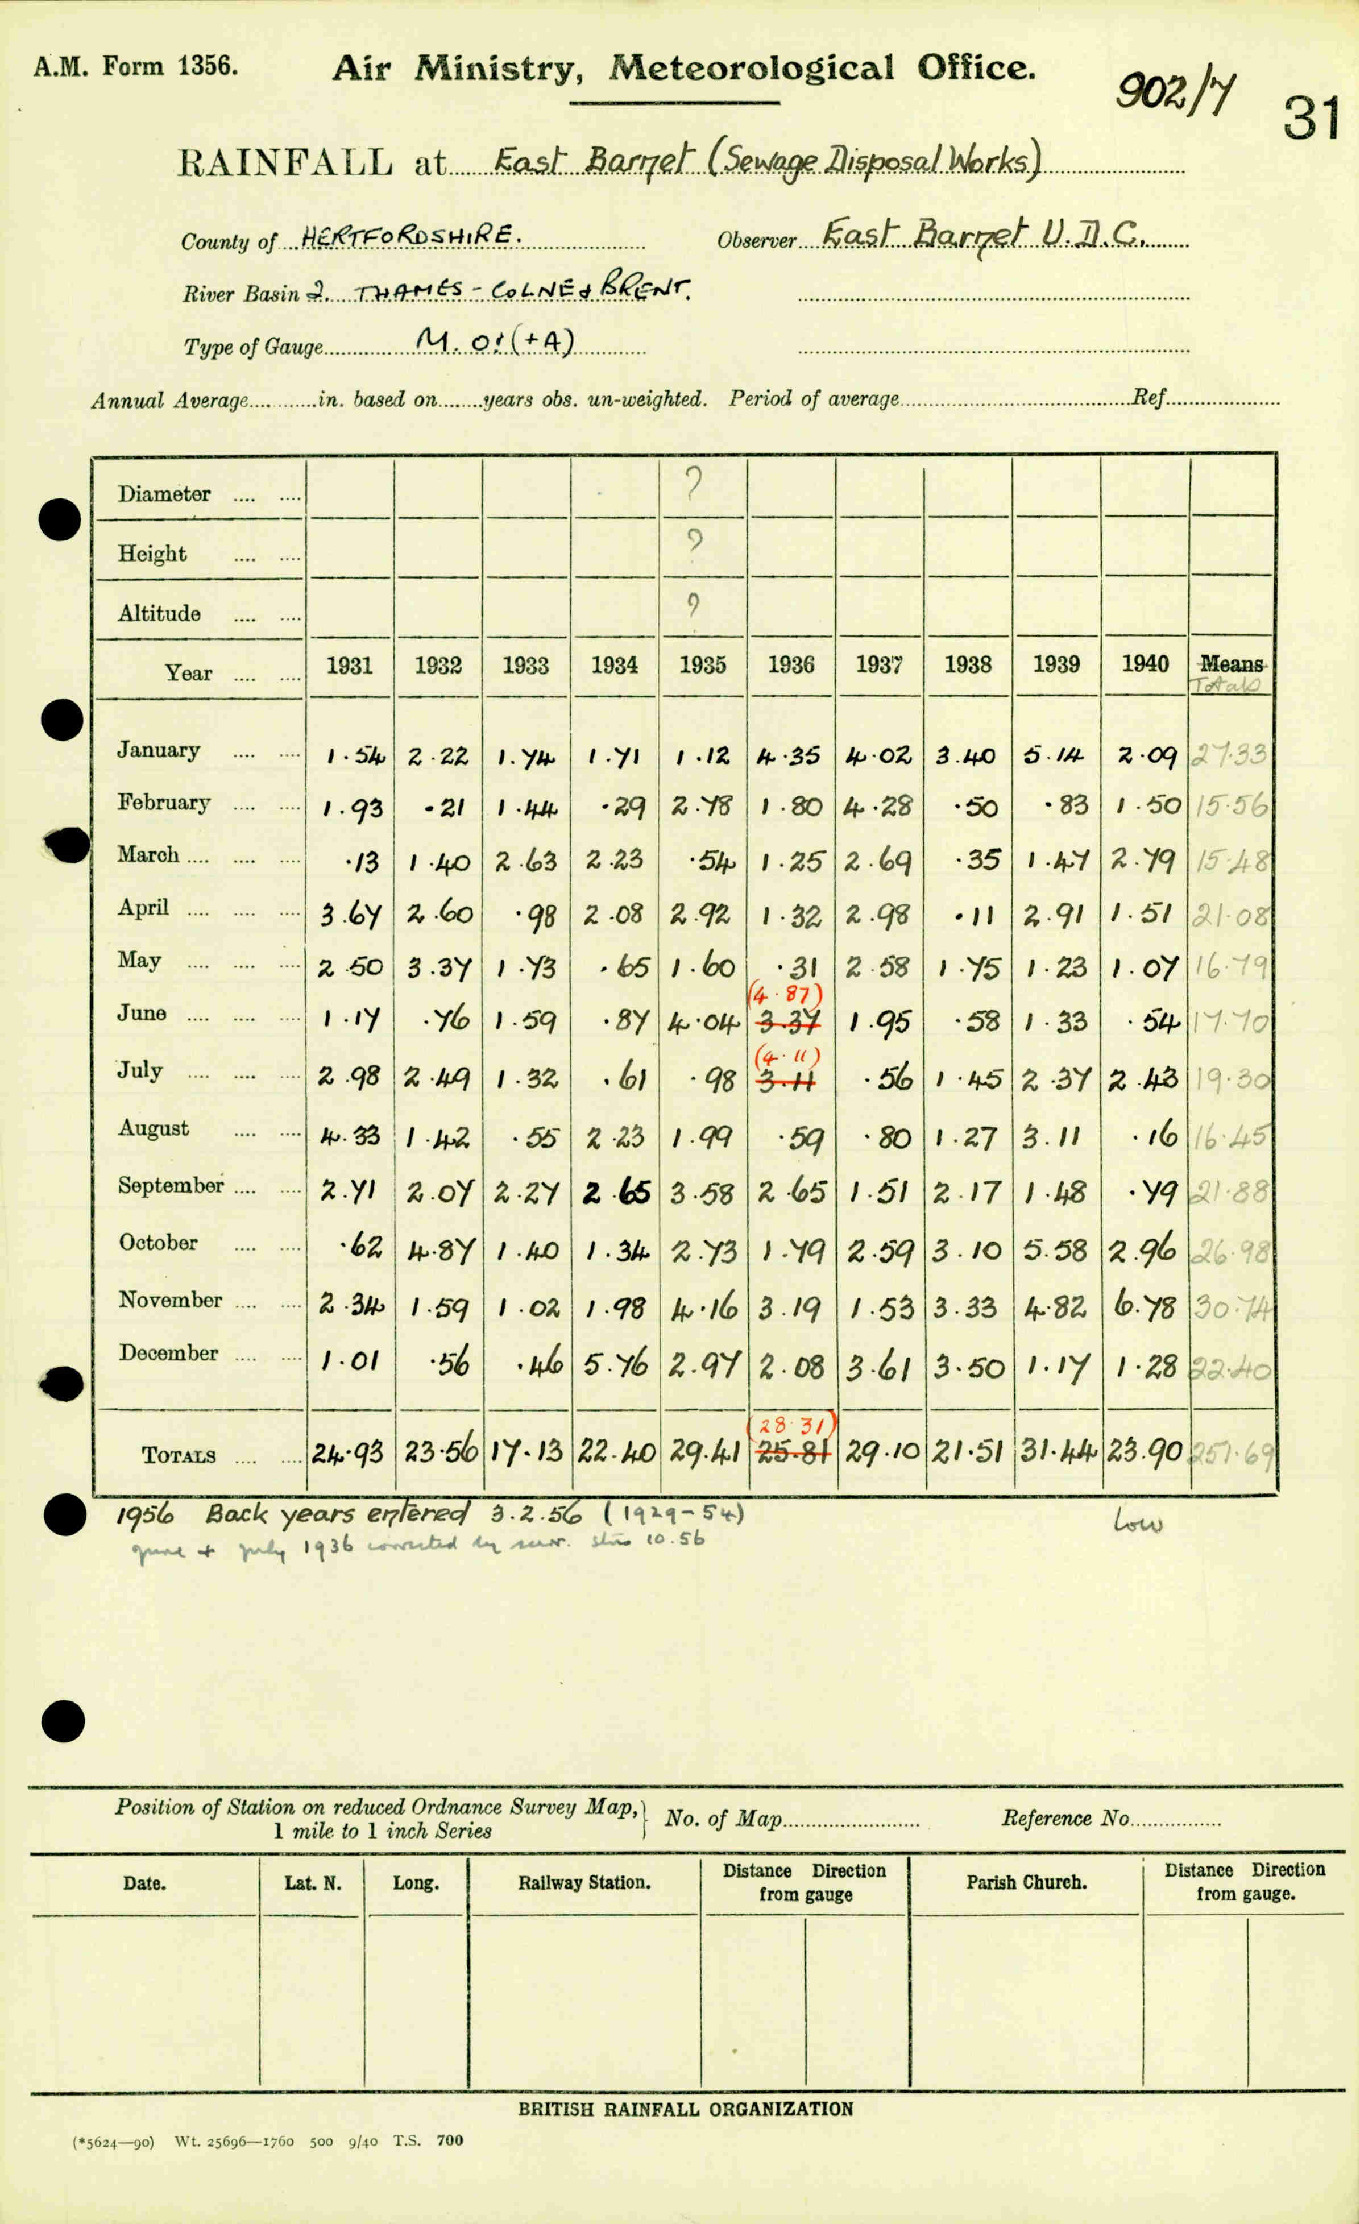 A.M. Form 1356. Air Ministry, Meteorological Office. 902/7 31
RAINFALL at East Barnet (Sewage Disposal Works)
County of HERTFORDSHIRE. Observer East Barnet U.D.C.
River Basin 2. THAMES - COLNE & BRENT.
Type of Gauge M. O. (+A)
Annual Average in. based on years obs. un-weighted. Period of average Ref
Diameter .... .... ?
Height .... .... ?
Altitude .... .... ?
Year .... .... 1931 1932 1933 1934 1935 1936 1937 1938 1939 1940 Means
Totals
January .... .... 1.54 2.22 1.74 1.71 1.12 4.35 4.02 3.40 5.14 2.09 27.33
February .... .... 1.93 .21 1.44 .29 2.78 1.80 4.28 .50 .83 1.50 15.56
March .... .... .... .13 1.40 2.63 2.23 .54 1.25 2.69 .35 1.47 2.79 15.48
April .... .... .... 3.67 2.60 .98 2.08 2.92 1.32 2.98 .11 2.91 1.51 21.08
May .... .... .... 2.50 3.37 1.73 .65 1.60 .31 2.58 1.75 1.23 1.07 16.79
(4.87)
June .... .... .... 1.17 .76 1.59 .87 4.04 3.37 1.95 .58 1.33 .54 17.70
(4.11)
July .... .... .... 2.98 2.49 1.32 .61 .98 3.11 .56 1.45 2.37 2.43 19.30
August .... .... 4.33 1.42 .55 2.23 1.99 .59 .80 1.27 3.11 .16 16.45
September .... .... 2.71 2.07 2.27 2.65 3.58 2.65 1.51 2.17 1.48 .79 21.88
October .... .... .62 4.87 1.40 1.34 2.73 1.79 2.59 3.10 5.58 2.96 26.98
November .... .... 2.34 1.59 1.02 1.98 4.16 3.19 1.53 3.33 4.82 6.78 30.74
December .... .... 1.01 .56 .46 5.76 2.97 2.08 3.61 3.50 1.17 1.28 22.40
(28.31)
TOTALS .... .... 24.93 23.56 17.13 22.40 29.41 25.81 29.10 21.51 31.44 23.90 251.69
1956 Back years entered 3.2.56 (1929-54) Low
June + July 1936 corrected by 10.56
Position of Station on reduced Ordnance Survey Map,} No. of Map Reference No.
1 mile to 1 inch Series
Date. Lat. N. Long. Railway Station. Distance Direction from gauge Parish Church. Distance Direction from gauge.
BRITISH RAINFALL ORGANIZATION
(*5624—90) Wt. 25696—1760 500 9/40 T.S. 700